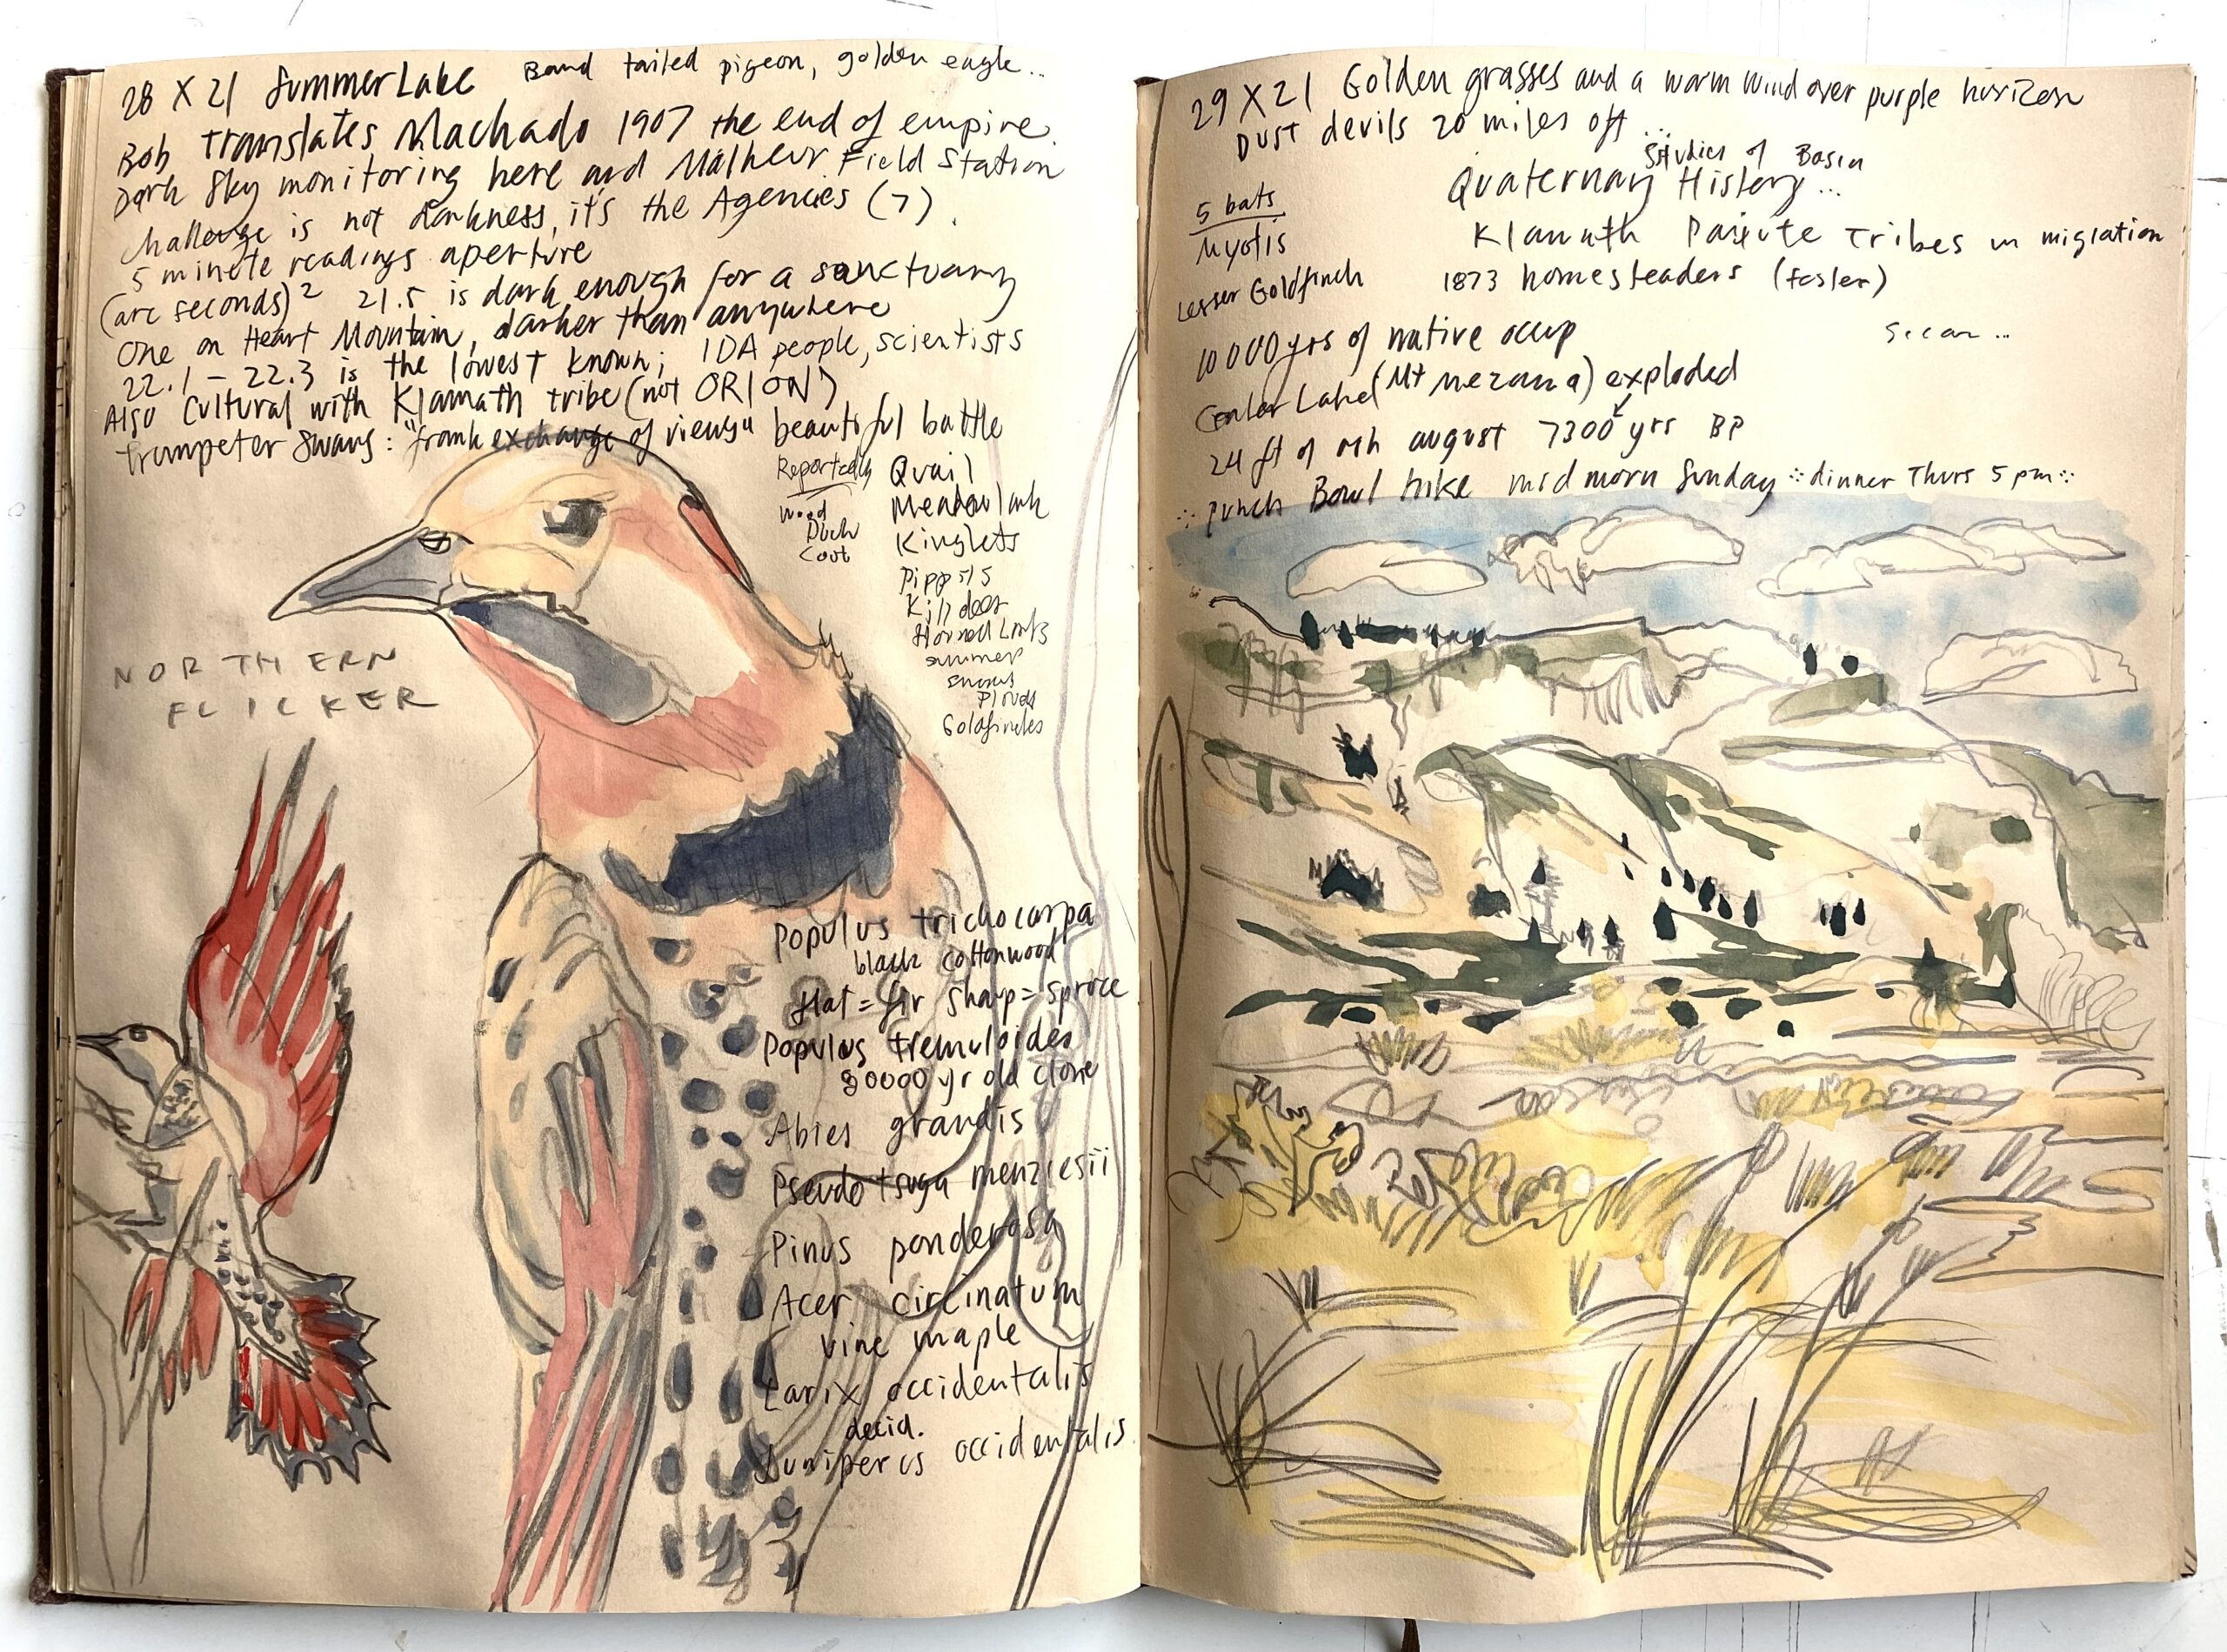 28 X 21 Summer Lake Band tailed pigeon, golden eagle...
Bob translates Machado 1907 the end of empire.
Dark Sky monitoring here and Malheur Field Station
Challenge is not darkness, it's the Agencies (7).
5 minute readings aperture
(arc seconds)² 21.5 is dark enough for a sanctuary
One on Heart Mountain, darker than anywhere
22.1 - 22.3 is the lowest known; IDA people, scientists
Also Cultural with Klamath tribe (not ORION)
Trumpeter Swans: "frank exchange of views" beautiful battle
Reportedly
Wood
Duck
Coot
Quail
Meadowlark
Kinglets
Pippits
Killdeer
Horned Larks
summer
Goldfinches
NORTHERN
FLICKER
Populus trichocarpa
black cottonwood
flat = fir sharp = spruce
Populus tremuloides
80000 yr old clone
Abies grandis
Pseudotsuga menziesii
Pinus ponderosa
Acer circinatum
vine maple
Larix occidentalis
decid.
Juniperus occidentalis
29 X 21 Golden grasses and a warm wind over purple horizon
Dust devils 20 miles off...
Studies of Basin
Quaternary History...
5 bats
Myotis
Klamath Paiute Tribes in migration
Lesser Goldfinch
1873 homesteaders (foster)
10000 yrs of native occup
Crater Lake (Mt Mezama) exploded
24 ft of ash august 7300 yrs BP
Punch Bowl hike mid morn Sunday dinner Thurs 5 pm